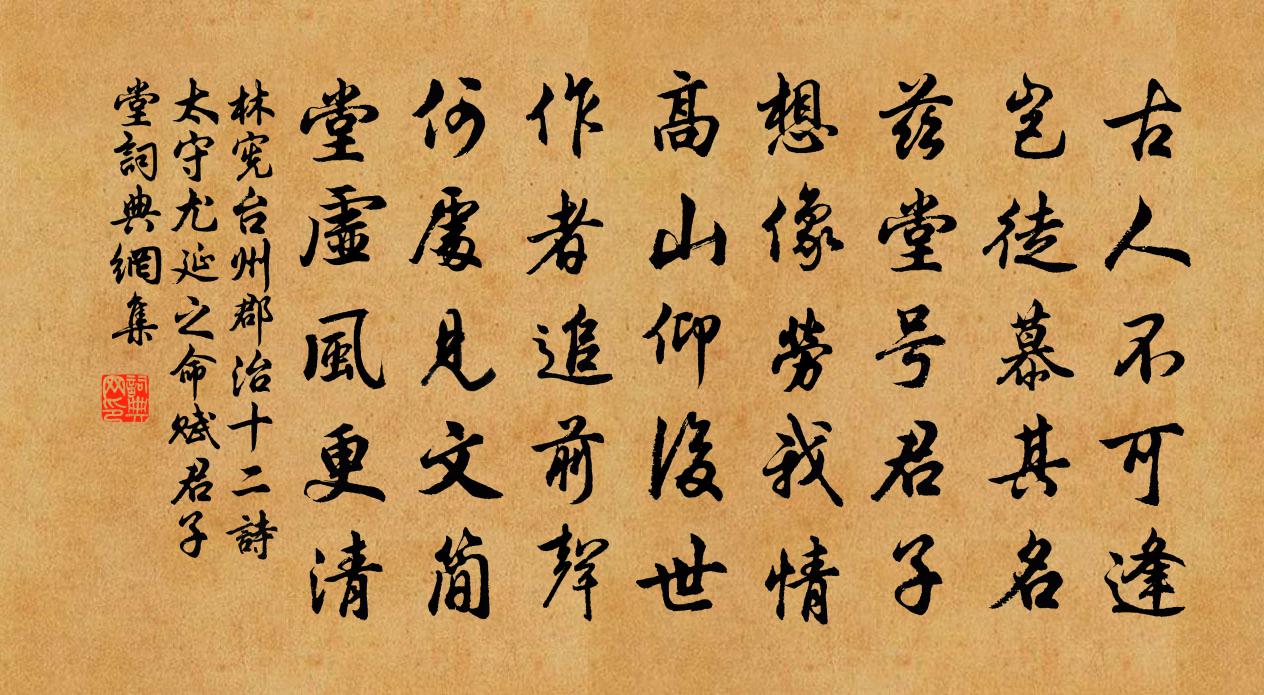 古人不可逢
岂徒慕其名
茲堂号君子
想像勞我情
高山仰後世
作者追前聲
何處見文简
堂虛風更清
林宪台州郡治十二詩
太守尤延之命赋君子
堂詞典網集
詞典网印